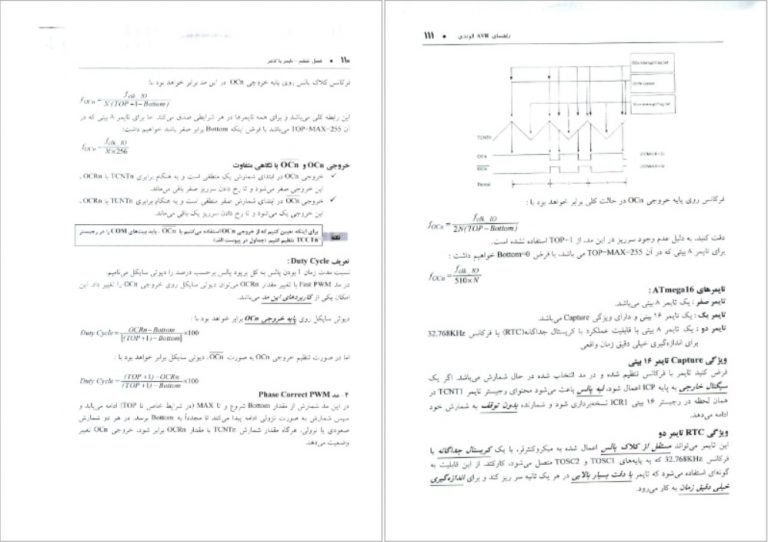 ۱۱۰ • فصل ششم - تایمر یا کانتر
فرکانس کلاک پالس روی پایه خروجی OCn در این مد برابر خواهد بود با:
f_OCn = f_clk_IO / N(TOP+1-Bottom)
این رابطه کلی می‌باشد و برای همه تایمرها در هر شرایطی صدق می‌کند. اما برای تایمر ۸ بیتی که در
آن TOP=MAX=255 می‌باشد با فرض اینکه Bottom برابر صفر باشد خواهیم داشت:
f_OCn = f_clk_IO / N×256
خروجی OCn و OCn با نگاهی متفاوت
✓ خروجی OCn در ابتدای شمارش یک منطقی است و به هنگام برابری TCNTn با OCRn،
این خروجی صفر می‌شود و تا رخ دادن سرریز صفر باقی می‌ماند.
✓ خروجی OCn در ابتدای شمارش صفر منطقی است و به هنگام برابری TCNTn با OCRn،
این خروجی یک می‌شود و تا رخ دادن سرریز یک باقی می‌ماند.
نکته برای اینکه تعیین کنیم که از خروجی OCn استفاده می‌کنیم یا OCn، باید بیت‌های COM را در رجیستر
TCCRn تنظیم کنیم. (جداول در پیوست الف)
تعریف Duty Cycle:
نسبت مدت زمان 1 بودن پالس به کل پریود پالس برحسب درصد را دیوتی سایکل می‌نامیم.
در مد Fast PWM با تغییر مقدار OCRn می‌توان دیوتی سایکل روی خروجی OCn را تغییر داد. این
امکان یکی از کاربردهای این مد می‌باشد.
دیوتی سایکل روی پایه خروجی OCn برابر خواهد بود با:
Duty Cycle = OCRn-Bottom / [(TOP+1)-Bottom] ×100
اما در صورت تنظیم خروجی OCn به صورت OCn، دیوتی سایکل برابر خواهد بود با:
Duty Cycle = (TOP+1)-OCRn / (TOP+1)-Bottom ×100
۴- مد Phase Correct PWM
در این مد شمارش از مقدار Bottom شروع و تا MAX (در شرایط خاص تا TOP) ادامه می‌یابد و
سپس شمارش به صورت نزولی ادامه پیدا می‌کند تا مجدداً به Bottom برسد. در هر دو شمارش
صعودی یا نزولی، هرگاه مقدار شمارش TCNTn با مقدار OCRn برابر شود، خروجی OCn تغییر
وضعیت می‌دهد.
راهنمای AVR الوندی • ۱۱۱
TCNTn
OCn
OCn
Period
فرکانس روی پایه خروجی OCn در حالت کلی برابر خواهد بود با:
f_OCn = f_clk_IO / 2N(TOP-Bottom)
دقت کنید، به دلیل عدم وجود سرریز در این مد، از TOP+1 استفاده نشده است.
برای تایمر ۸ بیتی که در آن TOP=MAX=255 می باشد، با فرض Bottom=0 خواهیم داشت:
f_OCn = f_clk_IO / 510×N
تایمرهای ATmega16:
تایمر صفر: یک تایمر ۸ بیتی می‌باشد.
تایمر یک: یک تایمر ۱۶ بیتی و دارای ویژگی Capture می‌باشد.
تایمر دو: یک تایمر ۸ بیتی با قابلیت عملکرد با کریستال جداگانه(RTC) با فرکانس 32.768KHz
برای اندازه‌گیری خیلی دقیق زمان واقعی
ویژگی Capture تایمر ۱۶ بیتی
فرض کنید تایمر با فرکانس تنظیم شده و در مد انتخاب شده در حال شمارش می‌باشد. اگر یک
سیگنال خارجی به پایه ICP اعمال شود، لبه پالس باعث می‌شود محتوای رجیستر تایمر TCNT1 در
همان لحظه در رجیستر ۱۶ بیتی ICR1 نسخه‌برداری شود و شمارنده بدون توقف به شمارش خود
ادامه می‌دهد.
ویژگی RTC تایمر دو
این تایمر می‌تواند مستقل از کلاک پالس اعمال شده به میکروکنترلر، با یک کریستال جداگانه با
فرکانس 32.768KHz که به پایه‌های TOSC1 و TOSC2 متصل می‌شود، کارکند. از این قابلیت به
گونه‌ای استفاده می‌شود که تایمر با دقت بسیار بالایی در هر یک ثانیه سر ریز کند و برای اندازه‌گیری
خیلی دقیق زمان به کار می‌رود.